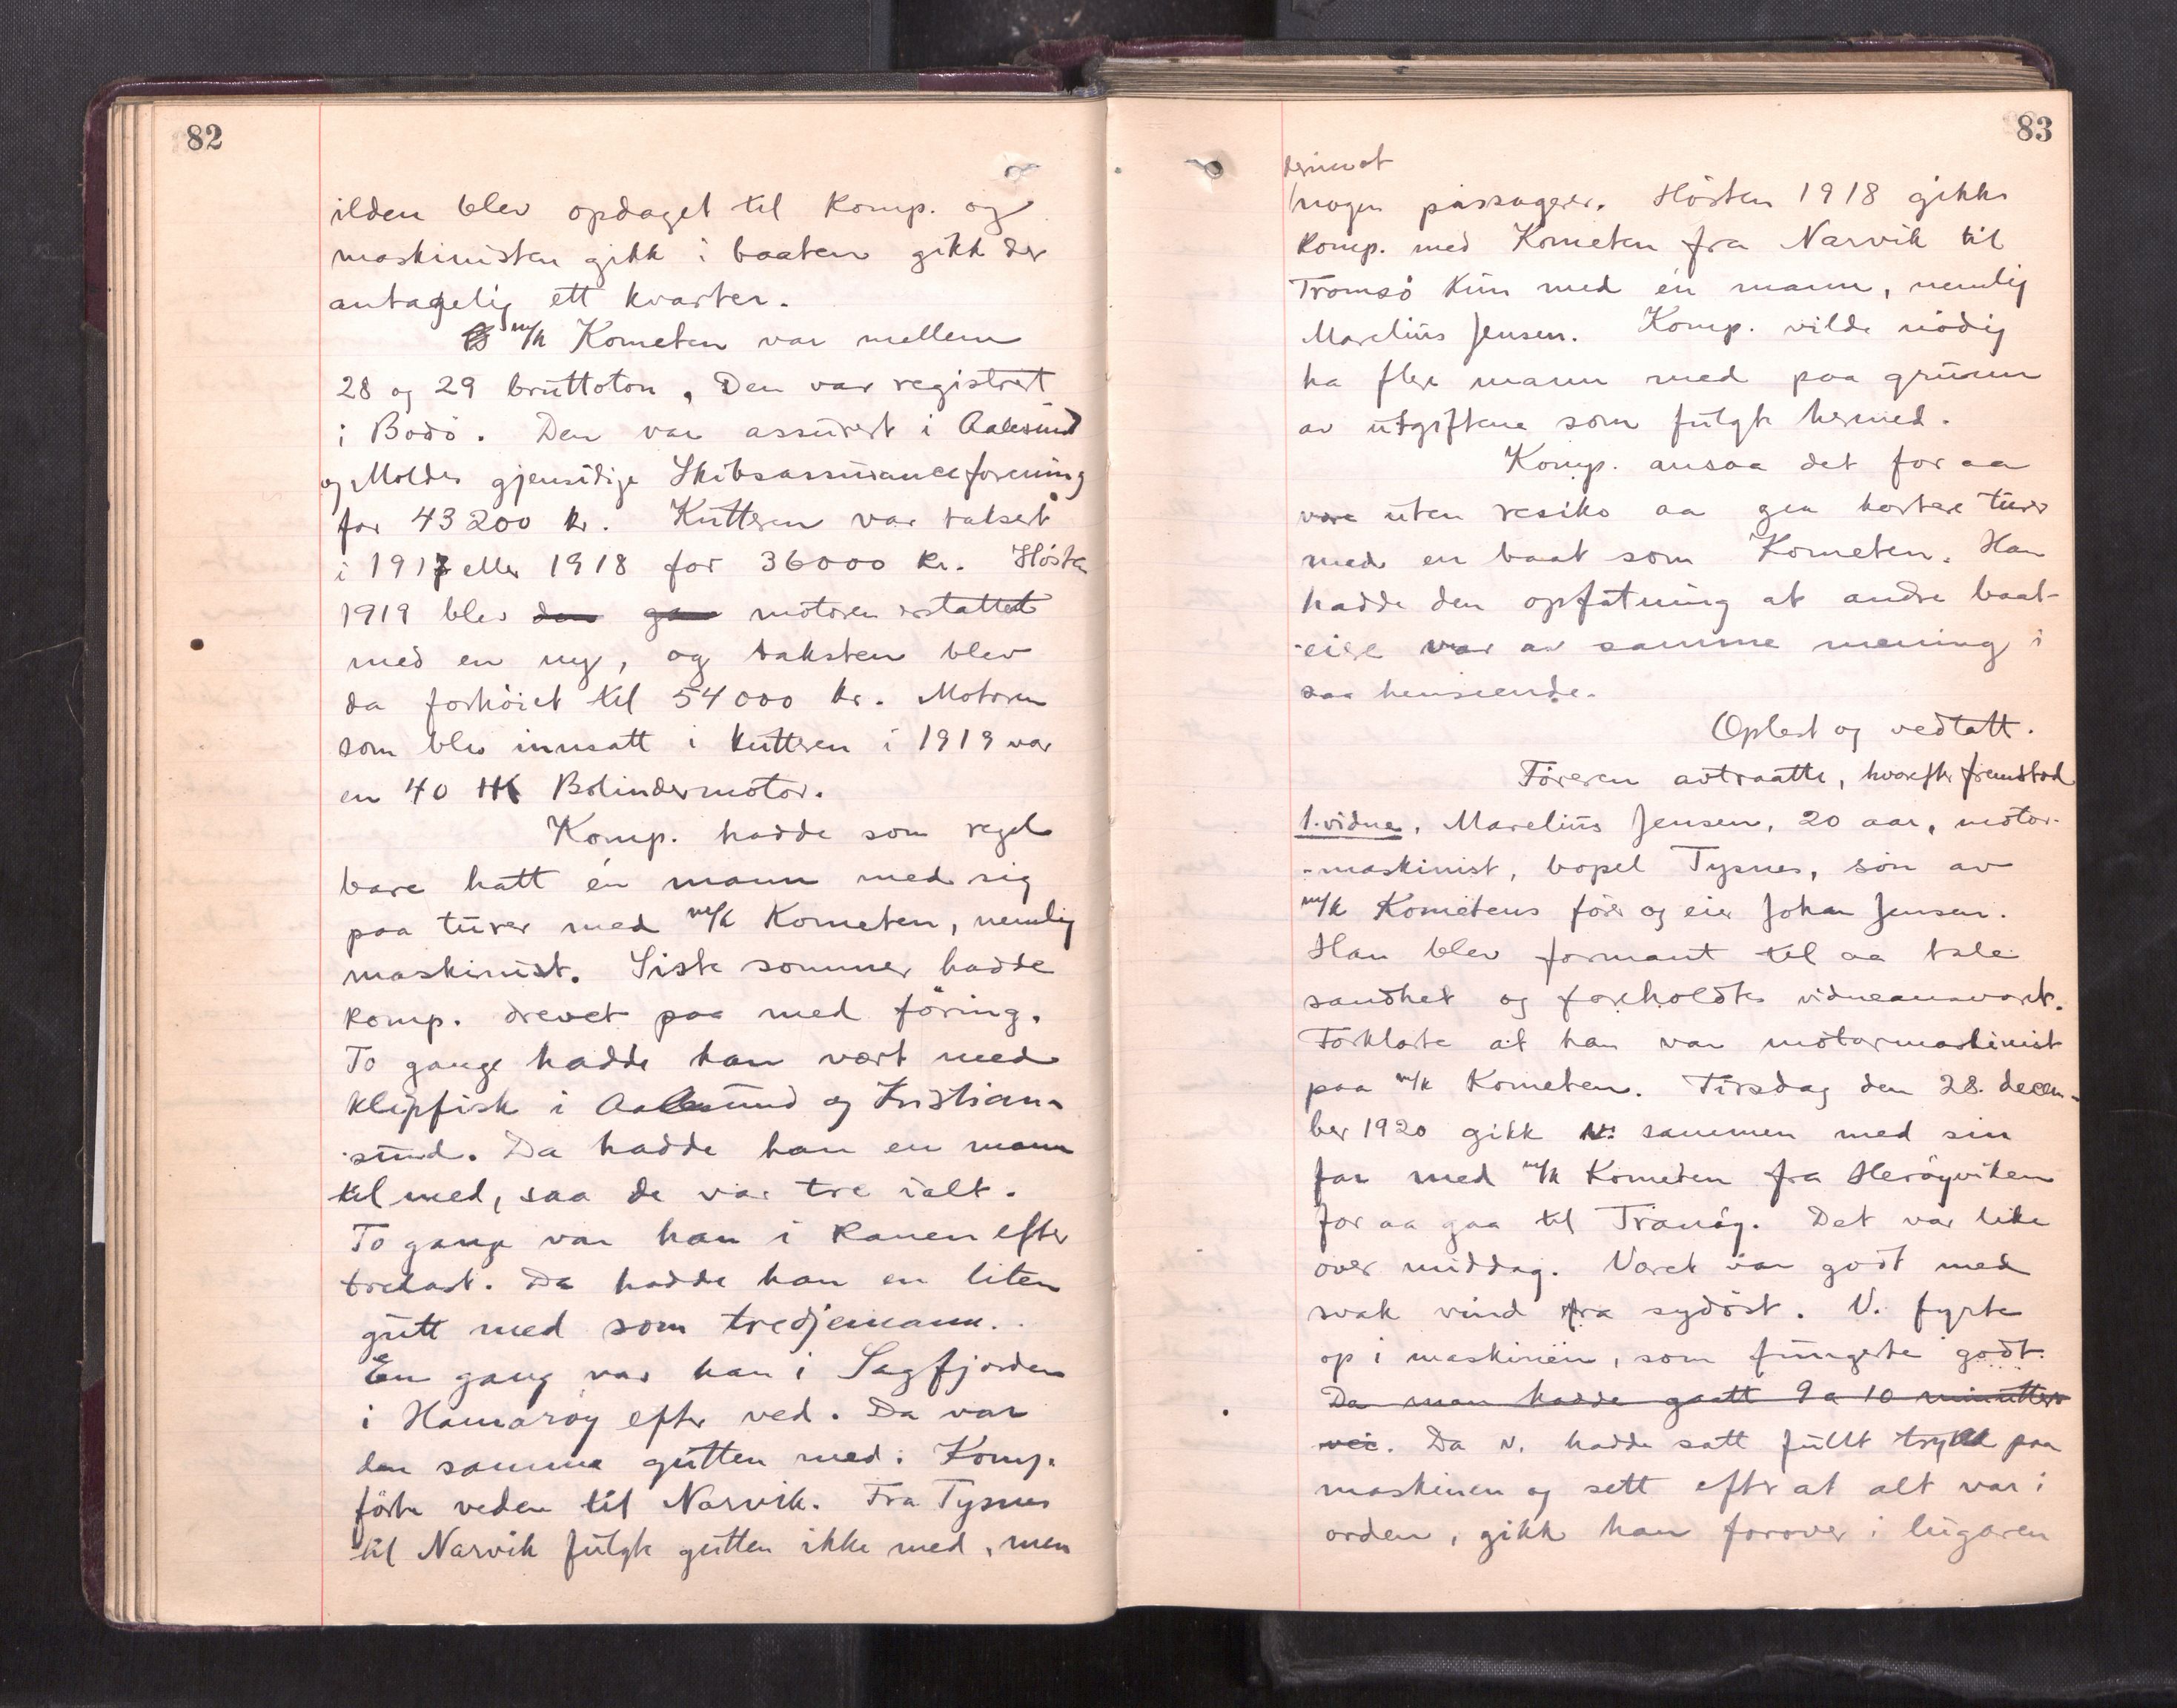 82
ilden blev opdaget til komp. og
maskinisten gikk i baaten gikk der
antagelig ett kvarter.
m/k Kometen var mellem
28 og 29 bruttoton, Den var registrert
i Bodö. Den var assurert i Aalesund
og Molde gjensidige Skibsassuranceforening
for 43200 kr. Kutteren var taksert
i 1917 eller 1918 for 36000 kr. Hösten
1919 blev den motoren erstattet
med en ny, og taksten blev
da forhöiet til 54000 kr. Motoren
som blev innsatt i kutteren i 1919 var
en 40 HK Bolindermotor.
Komp. hadde som regel
bare hatt én mann med sig
paa turer med m/k Kometen, nemlig
maskinist. Siste sommer hadde
komp. drevet paa med föring.
To gange hadde han vært med
klipfisk i Aalesund og Kristian-
sund. Da hadde han en mann
til med, saa de var tre ialt.
To gange var han i Ranen efter
trelast. Da hadde han en liten
gutt med som tredjemann.
En gang var han i Sagfjorden
i Hamaröy efter ved. Da var
den samme gutten med. Komp.
förte veden til Narvik. Fra Tysnes
til Narvik fulgte gutten ikke med, men
83
derimot
nogen passagerer. Hösten 1918 gikk
komp. med Kometen fra Narvik til
Tromsö kun med én mann, nemlig
Marelius Jensen. Komp. vilde nödig
ha flere mann med paa grunn
av utgiftene som fulgte hermed.
Komp. ansaa det for aa
være uten resiko aa gaa kortere turer
med en baat som Kometen. Han
hadde den opfatning at andre baat-
eiere var av samme mening i
saa henseende.
Oplest og vedtatt.
Föreren avtraatte, hvorefter fremstod
1. vidne, Marelius Jensen, 20 aar, motor-
-maskinist, bopel Tysnes, sön av
m/k Kometens förer og eier Johan Jensen.
Han blev formant til aa tale
sandhet og foreholdtes vidneansvaret.
Forklarte at han var motormaskinist
paa m/k Kometen. Tirsdag den 28. decem-
ber 1920 gikk v. sammen med sin
far med m/k Kometen fra Heröyviken
for aa gaa til Tranöy. Det var like
over middag. Været var godt med
svak vind fra sydöst. V. fyrte
op i maskinen, som fungerte godt.
Da man hadde gaatt 9 a 10 minutters
vei. Da v. hadde satt fullt trykk paa
maskinen og sett efter at alt var i
orden, gikk han forover i lugaren